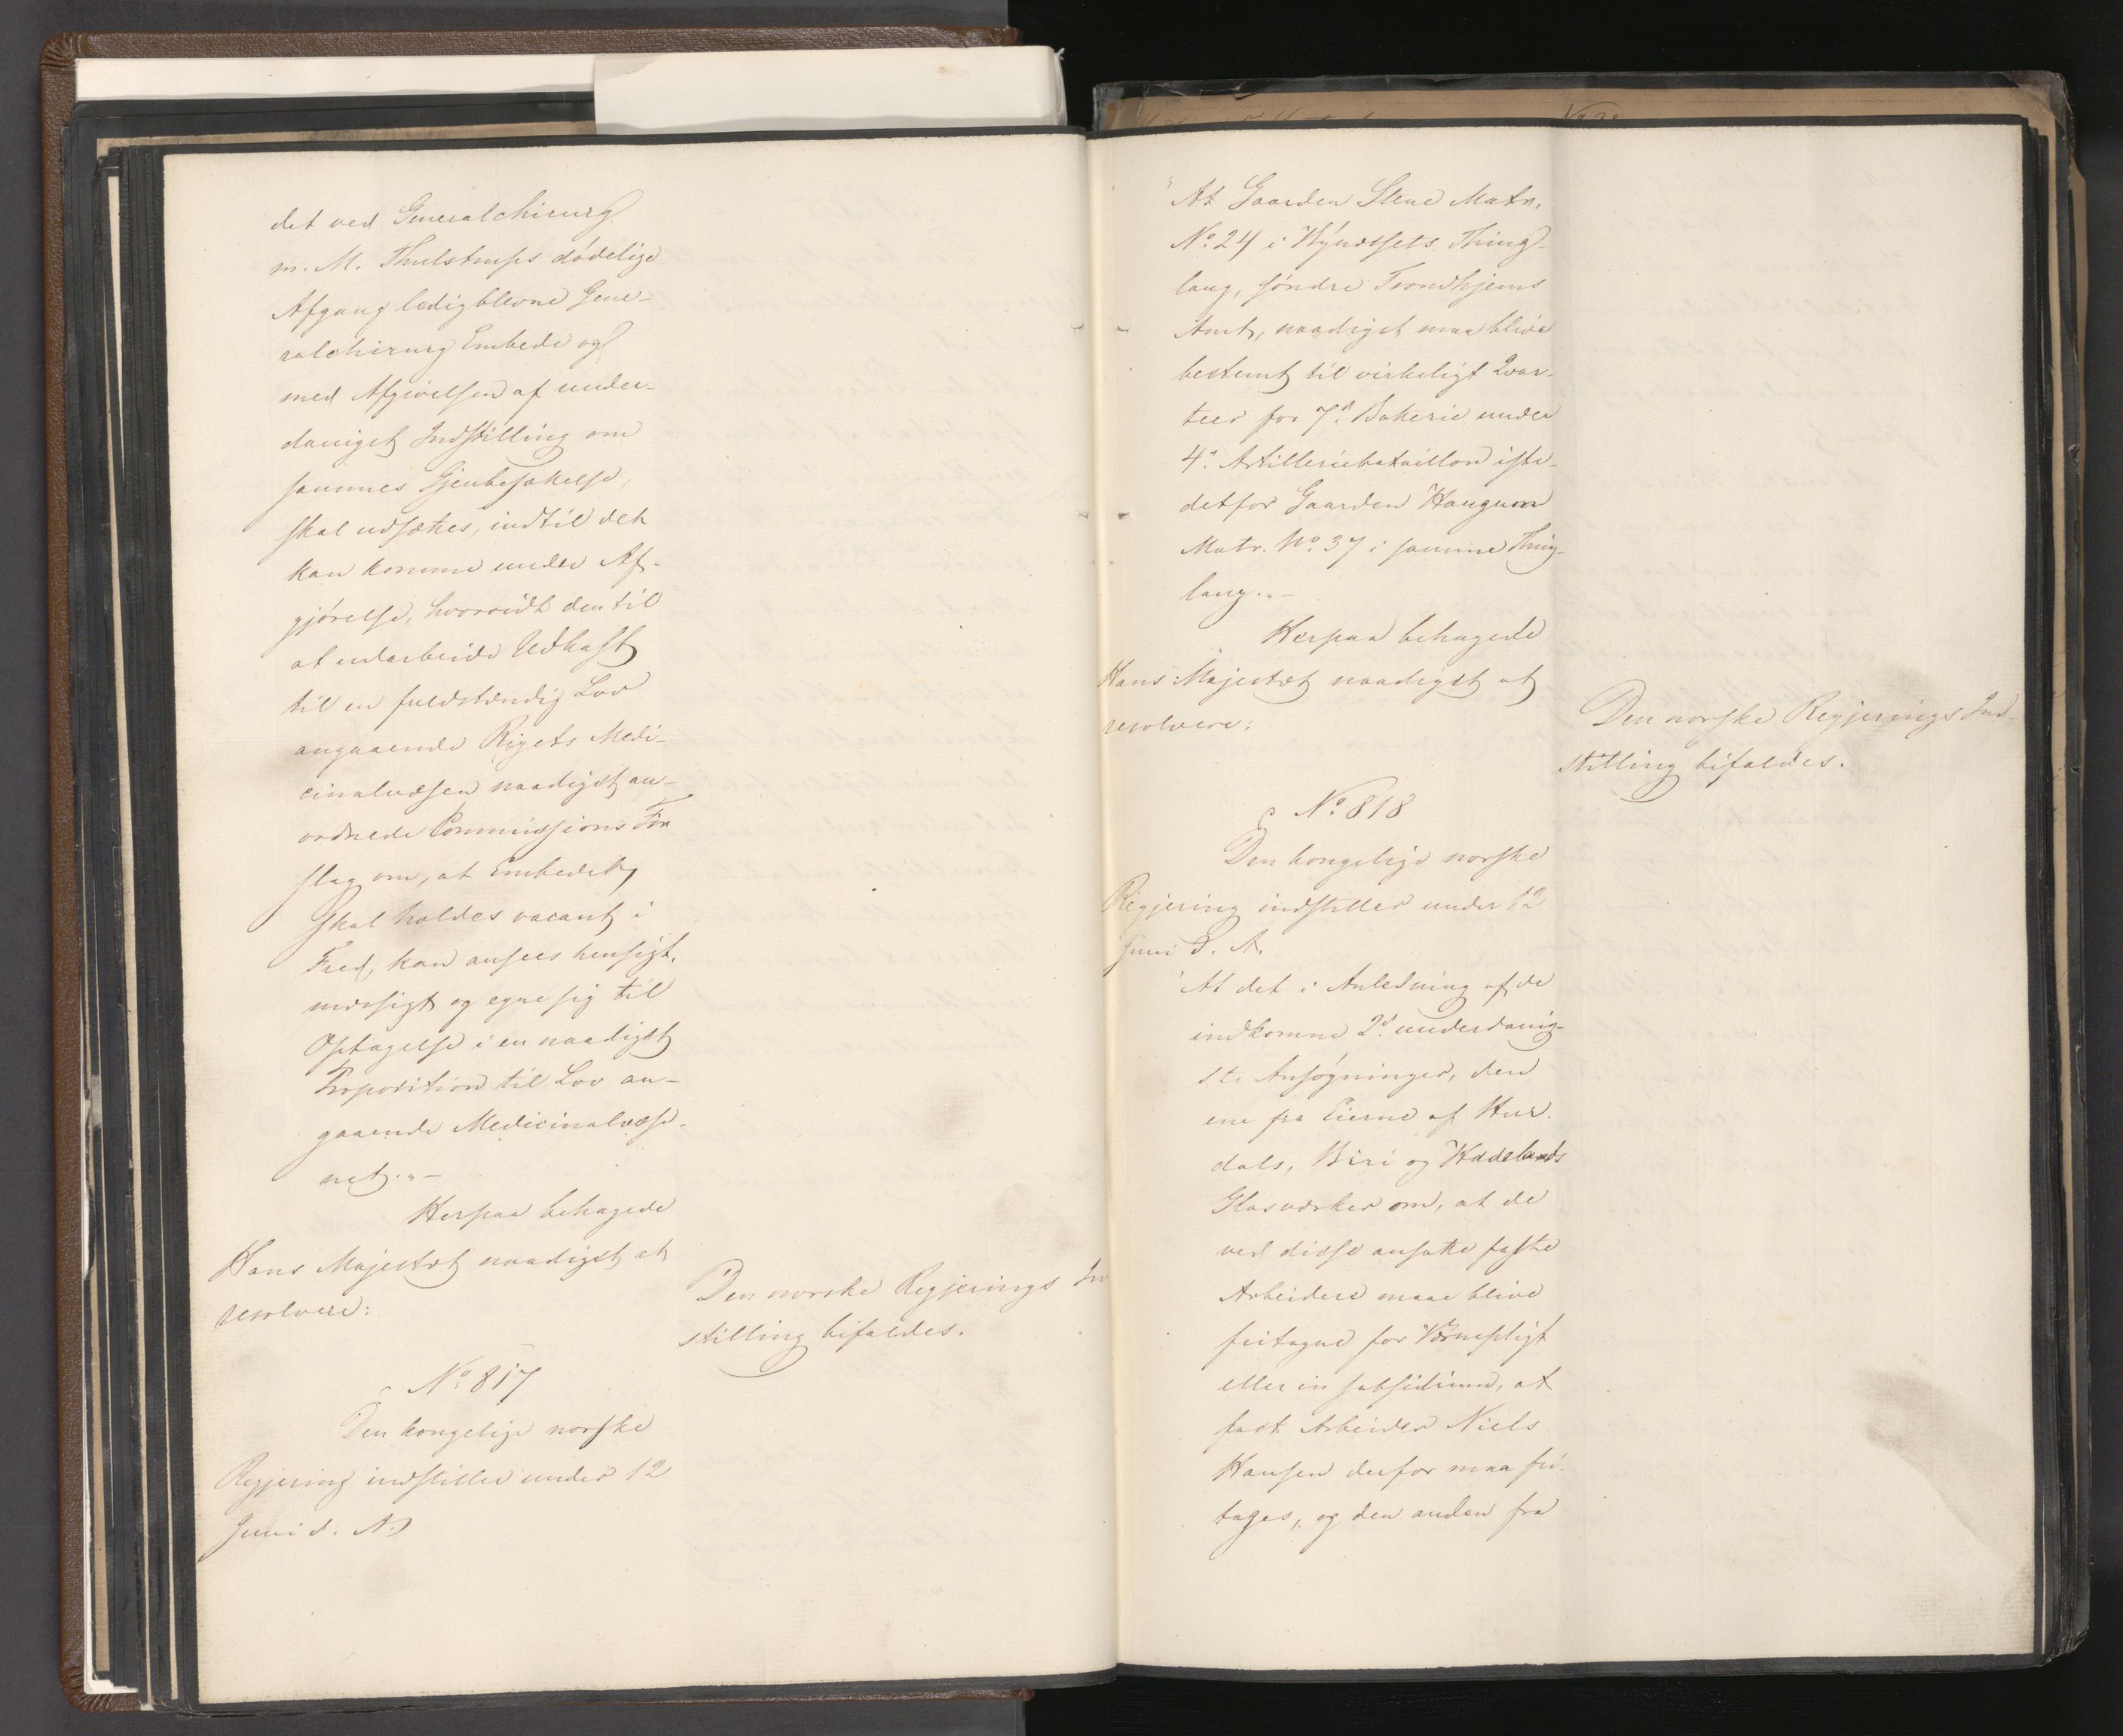 det ved Generalchirurg
m. M. Thulstrups dødelige
Afgang ledigblevne Gene-
ralchirurg Embede og
med Afgivelsen af under-
danigst Indstilling om
sammes Gjenbesættelse,
skal udsættes, indtil det
kan komme under Af-
gjørelse, hvorvidt den til
at udarbeide Udkast
til en fuldstændig Lov
angaaende Rigets Medi-
cinalvæsen naadigst an-
ordnede Commissions For
slag om, at Embedet
skal holdes vacant i
Fred, kan ansees hensigt-
mæssigt og egne sig til
Optagelse i en naadigst
Proposition til Lov an-
gaaende Medicinalvæse-
net."-
Herpaa behagede
Hans Majestæt naadigst at
resolvere:
Den norske Regjerings In
stilling bifaldes.
No. 817
Den kongelige norske
Regjering indstiller under 12
Juni d. A.
"At Gaarden Stene Matr.
No. 24 i Bynæssets Thing-
laug, søndre Trondhjems
Amt, naadigst maa blive
bestemt til virkeligt Qvar-
teer for 7d. Batterie under
4. Artilleriebataillon iste-
detfor Gaarden Haugum
Matr. No. 37 i samme Thing-
laug."-
Herpaa behagede
Hans Majestæt naadigst at
resolvere:
Den norske Regjerings Ind-
stilling bifaldes.
No. 818
Den kongelige norske
Regjering indstiller under 12
Juni d. A.
"At det i Anledning af de
indkomne 2d. underdanig-
ste Ansøgninger, den
ene fra Eierne af Hur-
dals, Biri og Hadelands
Glasværker om, at de
ved disse ansatte faste
Arbeidere maae blive
fritagne for Værnepligt
eller in subsidium, at
fast Arbeider Niels
Hansen derfor maa fri-
tages, og den anden fra